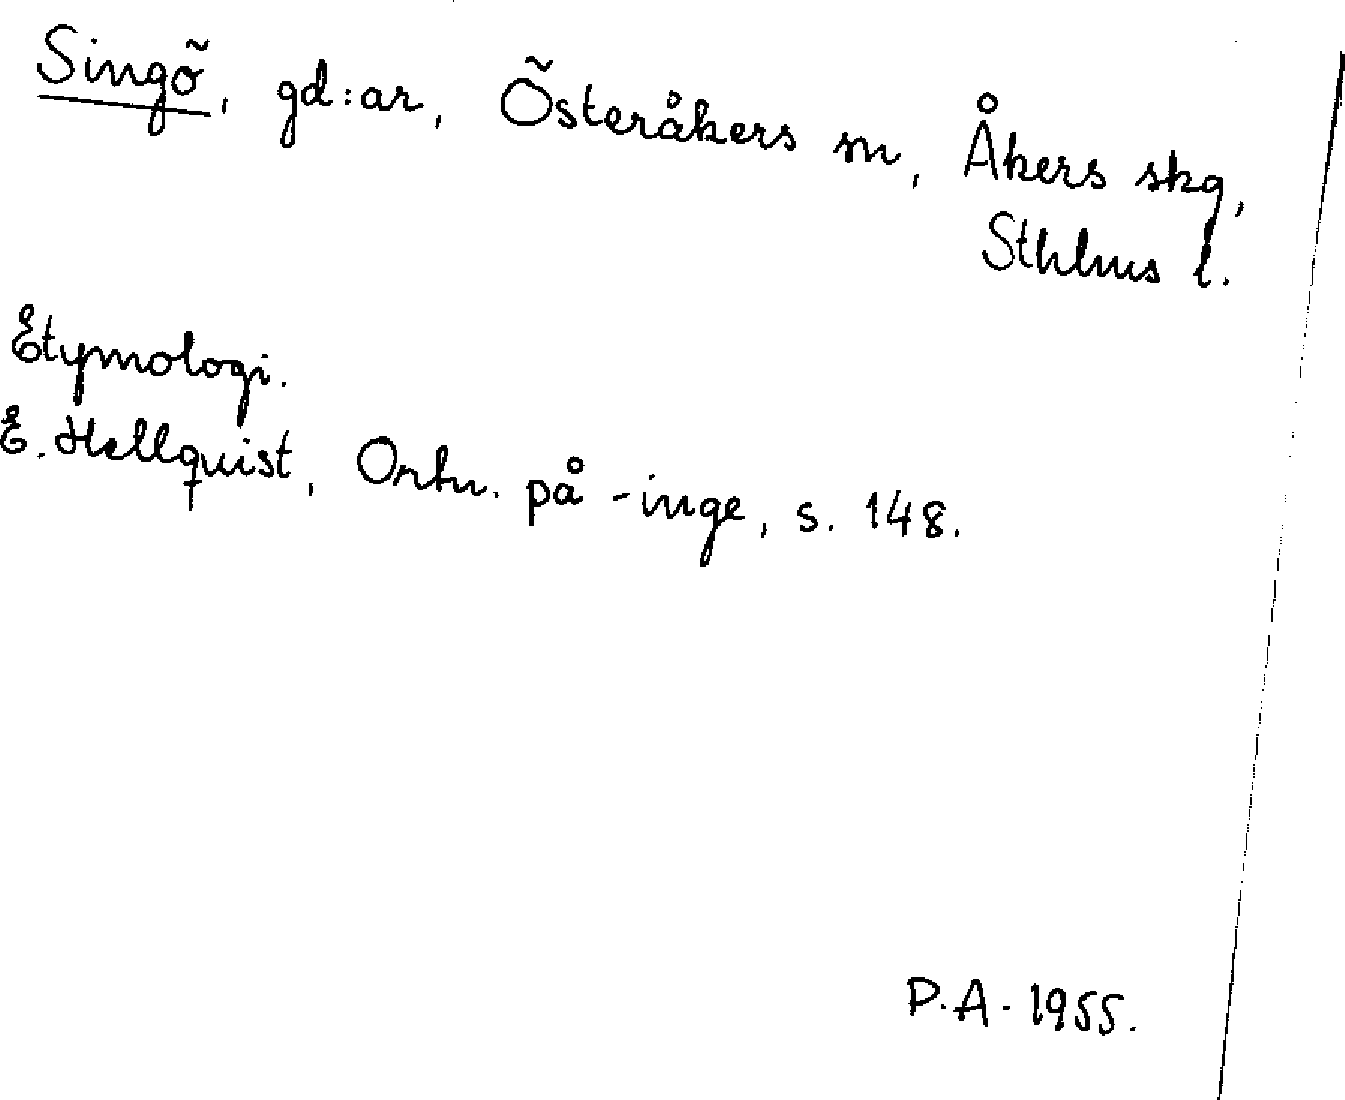 Singö, gd:ar, Österåkers sn, Åkers skg,
Sthlms l.
Etymologi.
E. Hellquist, Ortn. på -inge, s. 148.
P.A. 1955.